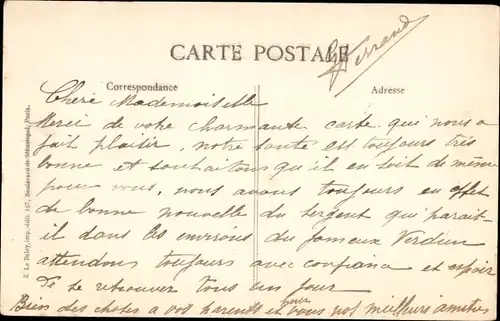 CARTE POSTALE
G Ferrand
Correspondance
Adresse
Chère Mademoiselle
Merci de votre charmante carte qui nous a
fait plaisir, notre santé est toujours très
bonne et souhaitons qu'il en soit de même
pour vous, nous avons toujours en effet
de bonne nouvelle du sergent qui parait-
il dans les environs du fameux Verdun
attendons toujours avec confiance et espoir
de se retrouver tous un jour
Bien des choses a vos parents et pour vous nos meilleurs amitiés
E. Le Deley, imp.-édit., 127, Boulevard de Sébastopol, Paris.